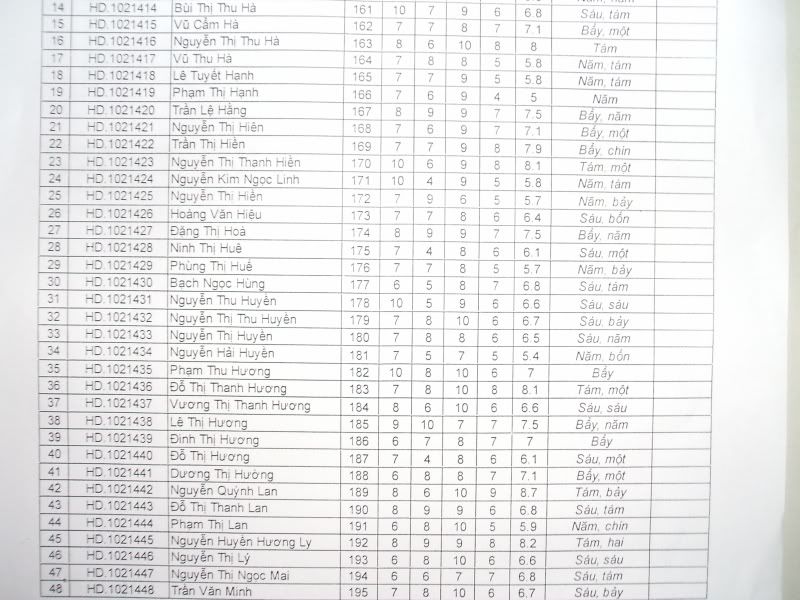 14 HD.1021414 Bùi Thị Thu Hà 161 10 7 9 6 6.8 Sáu, tám
15 HD.1021415 Vũ Cẩm Hà 162 7 7 8 7 7.1 Bẩy, một
16 HD.1021416 Nguyễn Thị Thu Hà 163 8 6 10 8 8 Tám
17 HD.1021417 Vũ Thu Hà 164 7 8 8 5 5.8 Năm, tám
18 HD.1021418 Lê Tuyết Hạnh 165 7 7 9 5 5.8 Năm, tám
19 HD.1021419 Phạm Thị Hạnh 166 7 6 9 4 5 Năm
20 HD.1021420 Trần Lệ Hằng 167 8 9 9 7 7.5 Bẩy, năm
21 HD.1021421 Nguyễn Thị Hiên 168 7 6 9 7 7.1 Bẩy, một
22 HD.1021422 Trần Thị Hiền 169 7 7 9 8 7.9 Bẩy, chín
23 HD.1021423 Nguyễn Thị Thanh Hiền 170 10 6 9 8 8.1 Tám, một
24 HD.1021424 Nguyễn Kim Ngọc Linh 171 10 4 9 5 5.8 Năm, tám
25 HD.1021425 Nguyễn Thị Hiền 172 7 9 6 5 5.7 Năm, bẩy
26 HD.1021426 Hoàng Văn Hiệu 173 7 7 8 6 6.4 Sáu, bốn
27 HD.1021427 Đặng Thị Hoà 174 8 9 9 7 7.5 Bẩy, năm
28 HD.1021428 Ninh Thị Huê 175 7 4 8 6 6.1 Sáu, một
29 HD.1021429 Phùng Thị Huế 176 7 7 8 5 5.7 Năm, bẩy
30 HD.1021430 Bạch Ngọc Hùng 177 6 5 8 7 6.8 Sáu, tám
31 HD.1021431 Nguyễn Thu Huyền 178 10 5 9 6 6.6 Sáu, sáu
32 HD.1021432 Nguyễn Thị Thu Huyền 179 7 8 10 6 6.7 Sáu, bẩy
33 HD.1021433 Nguyễn Thị Huyền 180 7 8 8 6 6.5 Sáu, năm
34 HD.1021434 Nguyễn Hải Huyền 181 7 5 7 5 5.4 Năm, bốn
35 HD.1021435 Phạm Thu Hương 182 10 8 10 6 7 Bẩy
36 HD.1021436 Đỗ Thị Thanh Hương 183 7 8 10 8 8.1 Tám, một
37 HD.1021437 Vương Thị Thanh Hương 184 8 6 10 6 6.6 Sáu, sáu
38 HD.1021438 Lê Thị Hương 185 9 10 7 7 7.5 Bẩy, năm
39 HD.1021439 Đinh Thị Hương 186 6 7 8 7 7 Bẩy
40 HD.1021440 Đỗ Thị Hương 187 7 4 8 6 6.1 Sáu, một
41 HD.1021441 Dương Thị Hường 188 6 8 8 7 7.1 Bẩy, một
42 HD.1021442 Nguyễn Quỳnh Lan 189 8 6 10 9 8.7 Tám, bẩy
43 HD.1021443 Đỗ Thị Thanh Lan 190 8 9 9 6 6.8 Sáu, tám
44 HD.1021444 Phạm Thị Lan 191 6 8 10 5 5.9 Năm, chín
45 HD.1021445 Nguyễn Huyền Hương Ly 192 8 9 9 8 8.2 Tám, hai
46 HD.1021446 Nguyễn Thị Lý 193 6 8 10 6 6.6 Sáu, sáu
47 HD.1021447 Nguyễn Thị Ngọc Mai 194 6 6 7 7 6.8 Sáu, tám
48 HD.1021448 Trần Văn Minh 195 7 8 10 6 6.7 Sáu, bẩy